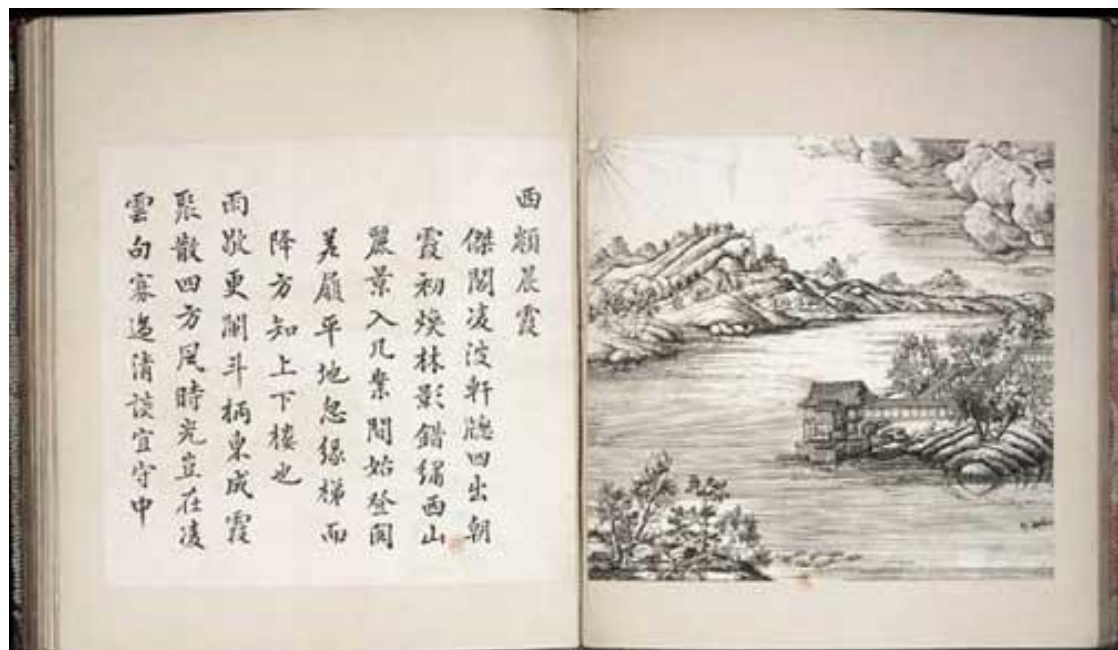 西嶺晨霞
傑閣凌波軒牕四出朝
霞初煥林影錯繡西山
麗景入几案間始登閣
若履平地忽緣梯而
降方知上下樓也
雨歇更闌斗柄東成霞
聚散四方風時光豈在凌
雲句寡過清談宜守中